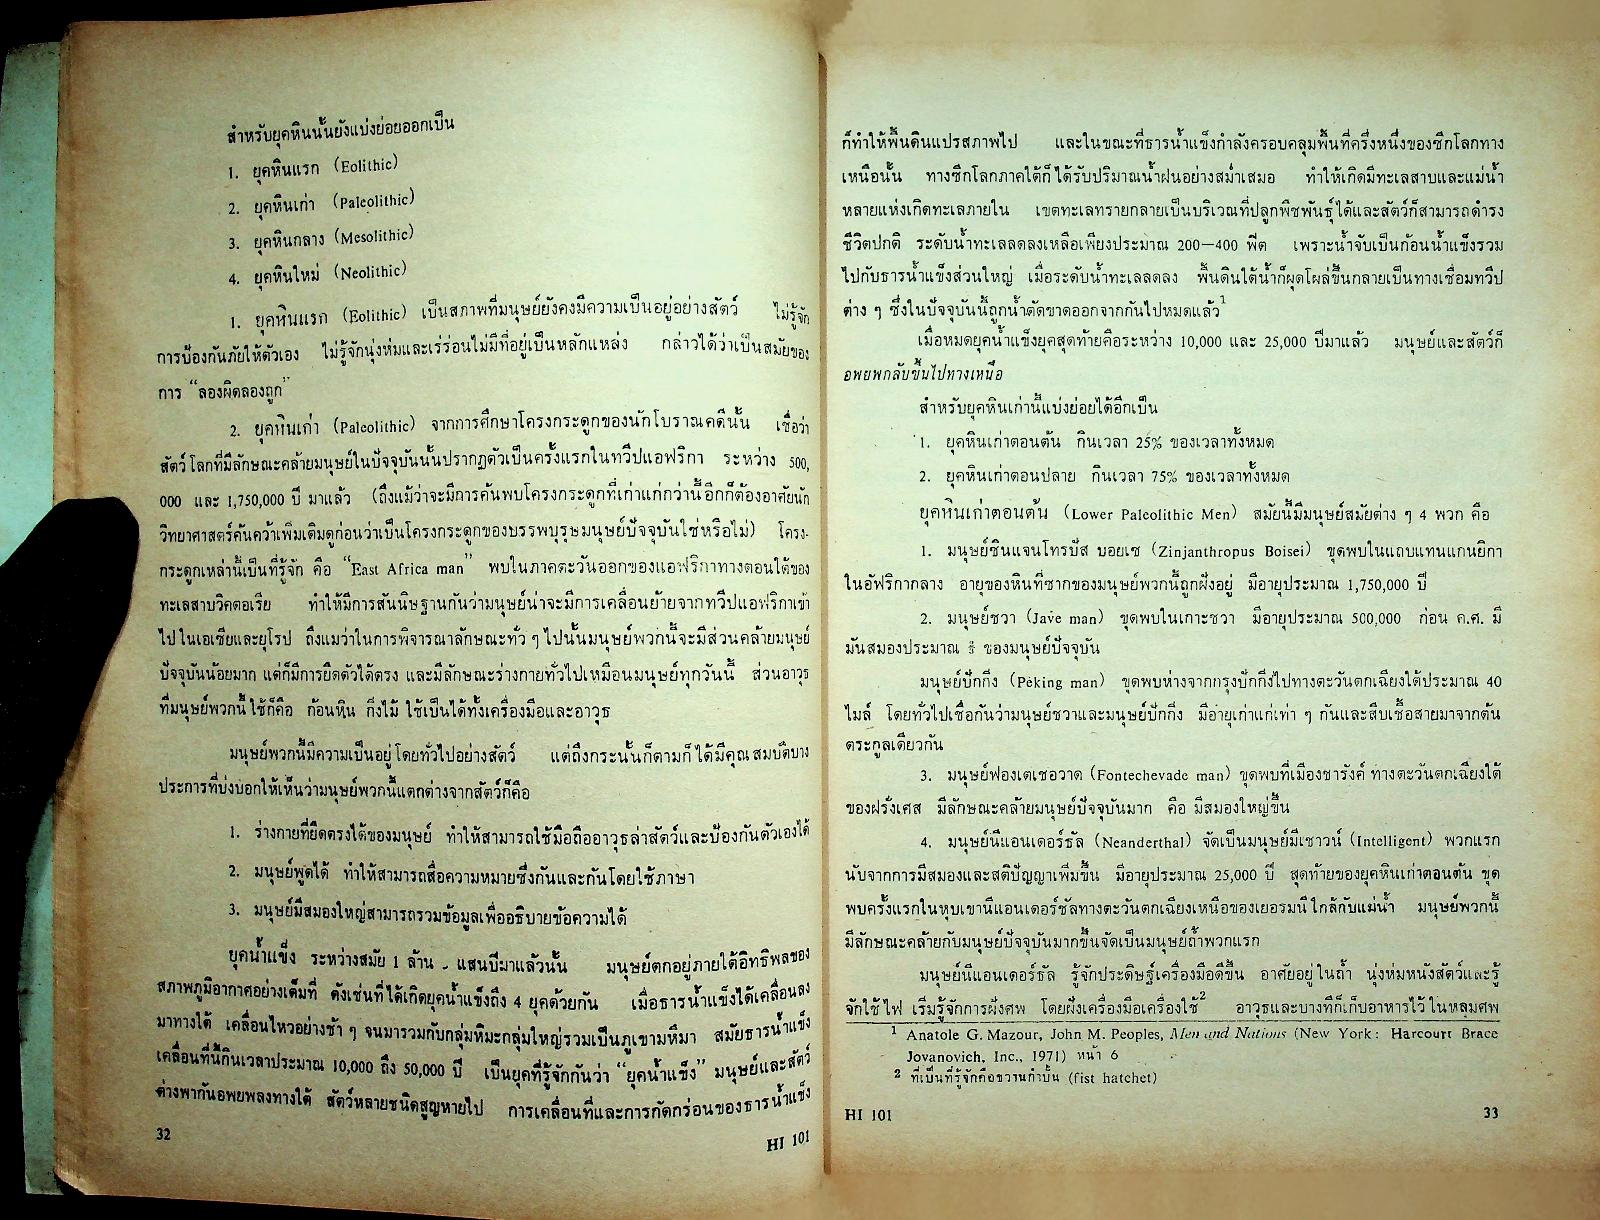 สำหรับยุคหินนั้นยังแบ่งย่อยออกเป็น
1. ยุคหินแรก (Eolithic)
2. ยุคหินเก่า (Paleolithic)
3. ยุคหินกลาง (Mesolithic)
4. ยุคหินใหม่ (Neolithic)
1. ยุคหินแรก (Eolithic) เป็นสภาพที่มนุษย์ยังคงมีความเป็นอยู่อย่างสัตว์ ไม่รู้จัก
การป้องกันภัยให้ตัวเอง ไม่รู้จักนุ่งห่มและเร่ร่อนไม่มีที่อยู่เป็นหลักแหล่ง กล่าวได้ว่าเป็นสมัยของ
การ “ลองผิดลองถูก”
2. ยุคหินเก่า (Paleolithic) จากการศึกษาโครงกระดูกของนักโบราณคดีนั้น เชื่อว่า
สัตว์โลกที่มีลักษณะคล้ายมนุษย์ในปัจจุบันนั้นปรากฏตัวเป็นครั้งแรกในทวีปแอฟริกา ระหว่าง 500,
000 และ 1,750,000 ปี มาแล้ว (ถึงแม้ว่าจะมีการค้นพบโครงกระดูกที่เก่าแก่กว่านี้อีกก็ต้องอาศัยนัก
วิทยาศาสตร์ค้นคว้าเพิ่มเติมดูก่อนว่าเป็นโครงกระดูกของบรรพบุรุษมนุษย์ปัจจุบันใช่หรือไม่) โครง-
กระดูกเหล่านี้เป็นที่รู้จัก คือ “East Africa man” พบในภาคตะวันออกของแอฟริกาทางตอนใต้ของ
ทะเลสาบวิคตอเรีย ทำให้มีการสันนิษฐานกันว่ามนุษย์น่าจะมีการเคลื่อนย้ายจากทวีปแอฟริกาเข้า
ไปในเอเซียและยุโรป ถึงแมว่าในการพิจารณาลักษณะทั่ว ๆ ไปนั้นมนุษย์พวกนี้จะมีส่วนคล้ายมนุษย์
ปัจจุบันน้อยมาก แต่ก็มีการยืดตัวได้ตรง และมีลักษณะร่างกายทั่วไปเหมือนมนุษย์ทุกวันนี้ ส่วนอาวุธ
ที่มนุษย์พวกนี้ใช้ก็คือ ก้อนหิน กิ่งไม้ ใช้เป็นได้ทั้งเครื่องมือและอาวุธ
มนุษย์พวกนี้มีความเป็นอยู่โดยทั่วไปอย่างสัตว์ แต่ถึงกระนั้นก็ตามก็ได้มีคุณสมบัติบาง
ประการที่บ่งบอกให้เห็นว่ามนุษย์พวกนี้แตกต่างจากสัตว์ก็คือ
1. ร่างกายที่ยืดตรงได้ของมนุษย์ ทำให้สามารถใช้มือถืออาวุธล่าสัตว์และป้องกันตัวเองได้
2. มนุษย์พูดได้ ทำให้สามารถสื่อความหมายซึ่งกันและกันโดยใช้ภาษา
3. มนุษย์มีสมองใหญ่สามารถรวมข้อมูลเพื่ออธิบายข้อความได้
ยุคน้ำแข็ง ระหว่างสมัย 1 ล้าน - แสนปีมาแล้วนั้น มนุษย์ตกอยู่ภายใต้อิทธิพลของ
สภาพภูมิอากาศอย่างเต็มที่ ดังเช่นที่ได้เกิดยุคน้ำแข็งถึง 4 ยุคด้วยกัน เมื่อธารน้ำแข็งได้เคลื่อนลง
มาทางใต้ เคลื่อนไหวอย่างช้า ๆ จนมารวมกับกลุ่มหิมะกลุ่มใหญ่รวมเป็นภูเขามหึมา สมัยธารน้ำแข็ง
เคลื่อนที่นี้กินเวลาประมาณ 10,000 ถึง 50,000 ปี เป็นยุคที่รู้จักกันว่า “ยุคน้ำแข็ง” มนุษย์และสัตว์
ต่างพากันอพยพลงทางใต้ สัตว์หลายชนิดสูญหายไป การเคลื่อนที่และการกัดกร่อนของธารน้ำแข็ง
32
HI 101
ก็ทำให้พื้นดินแปรสภาพไป และในขณะที่ธารน้ำแข็งกำลังครอบคลุมพื้นที่ครึ่งหนึ่งของซีกโลกทาง
เหนือนั้น ทางซีกโลกภาคใต้ก็ได้รับปริมาณน้ำฝนอย่างสม่ำเสมอ ทำให้เกิดมีทะเลสาบและแม่น้ำ
หลายแห่งเกิดทะเลภายใน เขตทะเลทรายกลายเป็นบริเวณที่ปลูกพืชพันธุ์ได้และสัตว์ก็สามารถดำรง
ชีวิตปกติ ระดับน้ำทะเลลดลงเหลือเพียงประมาณ 200—400 ฟีต เพราะน้ำจับเป็นก้อนน้ำแข็งรวม
ไปกับธารน้ำแข็งส่วนใหญ่ เมื่อระดับน้ำทะเลลดลง พื้นดินใต้น้ำก็ผุดโผล่ขึ้นกลายเป็นทางเชื่อมทวีป
ต่าง ๆ ซึ่งในปัจจุบันนี้ถูกน้ำตัดขาดออกจากกันไปหมดแล้ว¹
เมื่อหมดยุคน้ำแข็งยุคสุดท้ายคือระหว่าง 10,000 และ 25,000 ปีมาแล้ว มนุษย์และสัตว์ก็
อพยพกลับขึ้นไปทางเหนือ
สำหรับยุคหินเก่านี้แบ่งย่อยได้อีกเป็น
1. ยุคหินเก่าตอนต้น กินเวลา 25% ของเวลาทั้งหมด
2. ยุคหินเก่าตอนปลาย กินเวลา 75% ของเวลาทั้งหมด
ยุคหินเก่าตอนต้น (Lower Paleolithic Men) สมัยนี้มีมนุษย์สมัยต่าง ๆ 4 พวก คือ
1. มนุษย์ซินแจนโทรปัส บอยเซ (Zinjanthropus Boisei) ขุดพบในแถบแทนแกนยิกา
ในอัฟริกากลาง อายุของหินที่ซากของมนุษย์พวกนี้ถูกฝังอยู่ มีอายุประมาณ 1,750,000 ปี
2. มนุษย์ชวา (Jave man) ขุดพบในเกาะชวา มีอายุประมาณ 500,000 ก่อน ค.ศ. มี
มันสมองประมาณ ของมนุษย์ปัจจุบัน
มนุษย์ปักกิ่ง (Peking man) ขุดพบห่างจากกรุงปักกิ่งไปทางตะวันตกเฉียงใต้ประมาณ 40
ไมล์ โดยทั่วไปเชื่อกันว่ามนุษย์ชวาและมนุษย์ปักกิ่ง มีอายุเก่าแก่เท่า ๆ กันและสืบเชื้อสายมาจากต้น
ตระกูลเดียวกัน
3. มนุษย์ฟองเตเชอวาด (Fontechevade man) ขุดพบที่เมืองชารังค์ ทางตะวันตกเฉียงใต้
ของฝรั่งเศส มีลักษณะคล้ายมนุษย์ปัจจุบันมาก คือ มีสมองใหญ่ขึ้น
4. มนุษย์นีแอนเดอร์ธัล (Neanderthal) จัดเป็นมนุษย์มีเชาวน์ (Intelligent) พวกแรก
นับจากการมีสมองและสติปัญญาเพิ่มขึ้น มีอายุประมาณ 25,000 ปี สุดท้ายของยุคหินเก่าตอนต้น ขุด
พบครั้งแรกในหุบเขานีแอนเดอร์ธัลทางตะวันตกเฉียงเหนือของเยอรมนีใกล้กับแม่น้ำ มนุษย์พวกนี้
มีลักษณะคล้ายกับมนุษย์ปัจจุบันมากขึ้นจัดเป็นมนุษย์ถ้ำพวกแรก
มนุษย์นีแอนเดอร์ธัล รู้จักประดิษฐ์เครื่องมือดีขึ้น อาศัยอยู่ในถ้ำ นุ่งห่มหนังสัตว์และรู้
จักใช้ไฟ เริ่มรู้จักการฝังศพ โดยฝังเครื่องมือเครื่องใช้² อาวุธและบางทีก็เก็บอาหารไว้ในหลุมศพ
¹ Anatole G. Mazour, John M. Peoples, Men and Nations (New York: Harcourt Brace
Jovanovich, Inc., 1971) หน้า 6
² ที่เป็นที่รู้จักคือขวานกำปั้น (fist hatchet)
HI 101
33